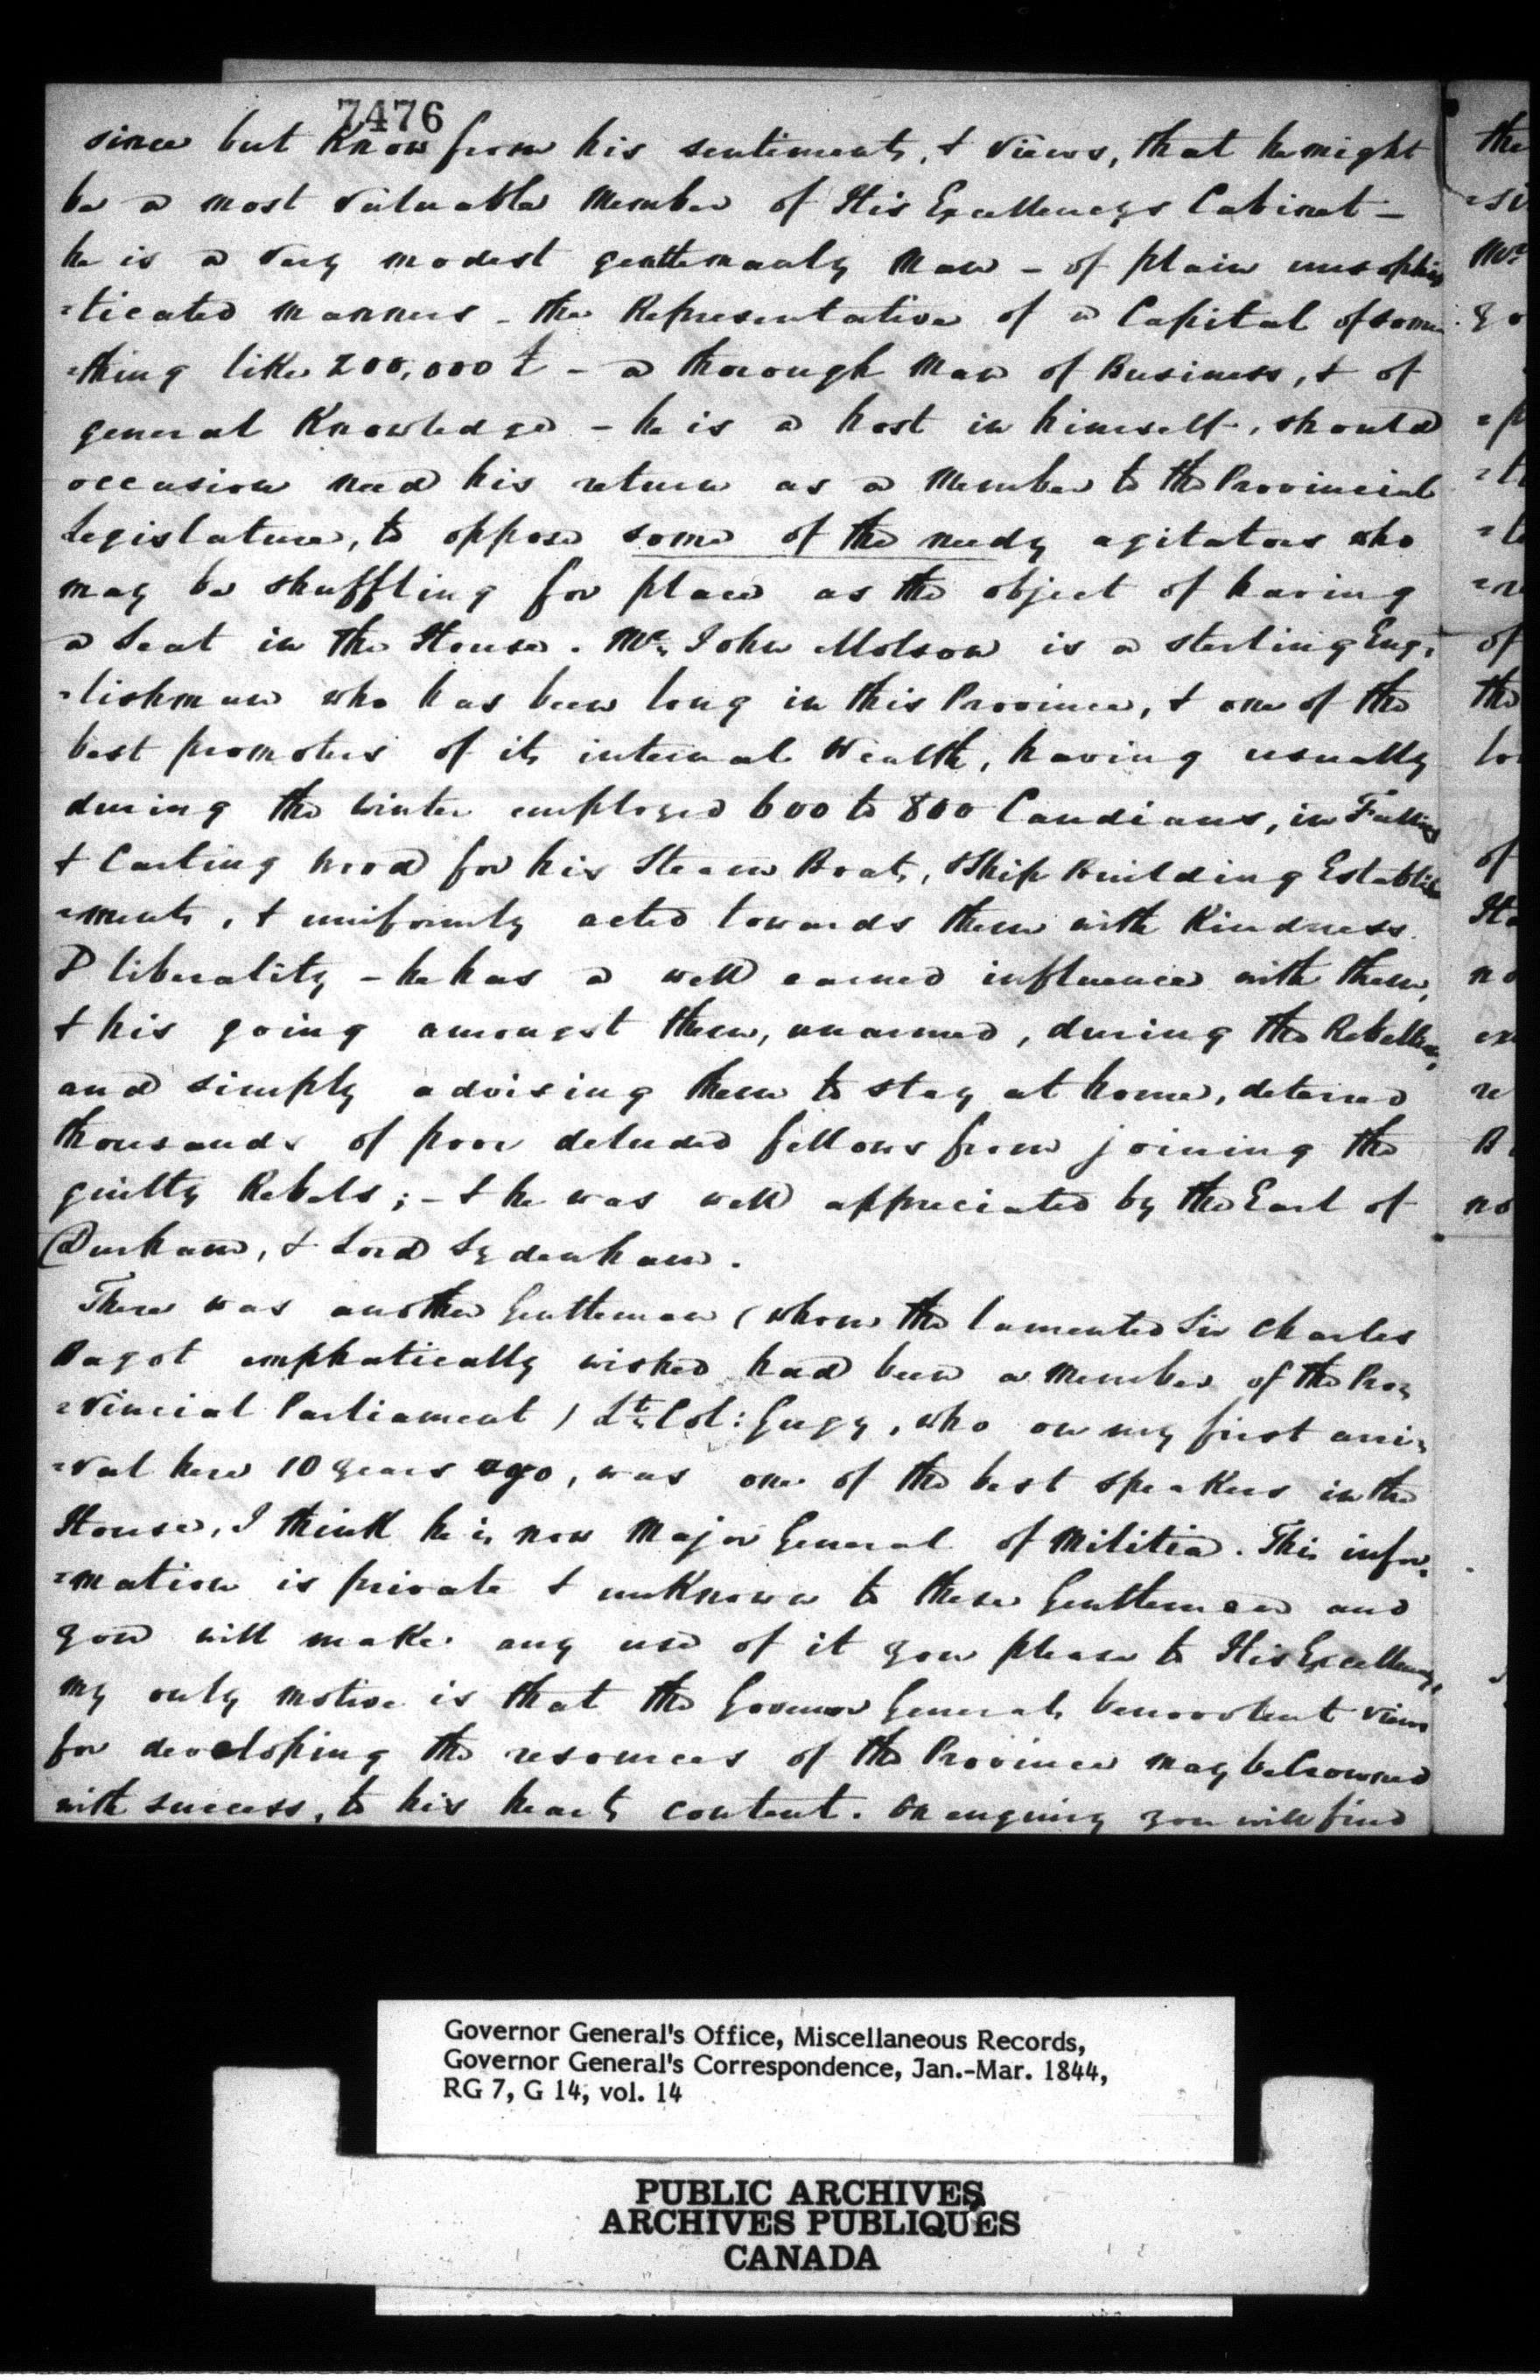 7476
since but Know from his sentiments, & views, that he might
be a most valuable member of His Excellencys Cabinet –
he is a very modest gentlemanly man – of plain unsophis
=ticated manners – the Representative of a Capital of some
=thing like 200,000 £ – a thorough man of Business, & of
general Knowledge – he is a host in himself, should
occasion need his return as a member to the Provincial
Legislature, to oppose some of the needy agitators who
may be shuffling for place as the object of having
a Seat in the House. Mr. John Molson is a sterling Eng=
=lishman who has been long in this Province, & one of the
best promoters of its internal Wealth, having usually
during the Winter employed 600 to 800 Candians, in Falling
& Carting wood for his Steam Boats, & Ship Building Establish
=ments, & uniformly acted towards them with Kindness
& liberality – he has a well earned influence with them,
& his going amongst them, unarmed, during the Rebellion,
and simply advising them to stay at home, deterred
thousands of poor deluded fellows from joining the
guilty Rebels; – & he was well appreciated by the Earl of
Durham, & Lord Sydenham.
There was another Gentleman (whom the lamented Sir Charles
Bagot emphatically wished had been a member of the Pro=
=vincial Parliament) Lt. Col: Gugy, who on my first arri=
=val here 10 years ago, was one of the best speakers in the
House, I think he is now Major General of Militia. This infor=
=mation is private & unKnown to these Gentlemen and
you will make any use of it you please to His Excellency,
my only motive is that the Governor Generals benevolent views
for developing the resources of the Province may be Crowned
with success, to his hearts content. On enquiry you will find
the
Mr
of
the
of
no
re
no
Governor General's Office, Miscellaneous Records,
Governor General's Correspondence, Jan.-Mar. 1844,
RG 7, G 14, vol. 14
PUBLIC ARCHIVES
ARCHIVES PUBLIQUES
CANADA